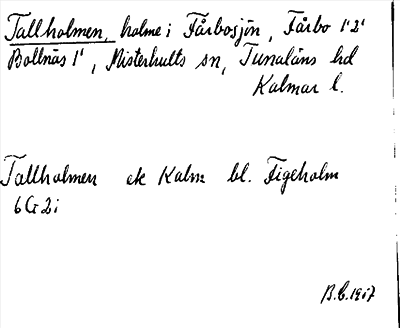 Tallholmen, holme i Fårbosjön, Fårbo 1²2¹
Bollnäs 1¹, Misterhults sn, Tunaläns hd
Kalmar l.
Tallholmen ek Kalm bl. Figeholm
6G2i
B.C. 1957